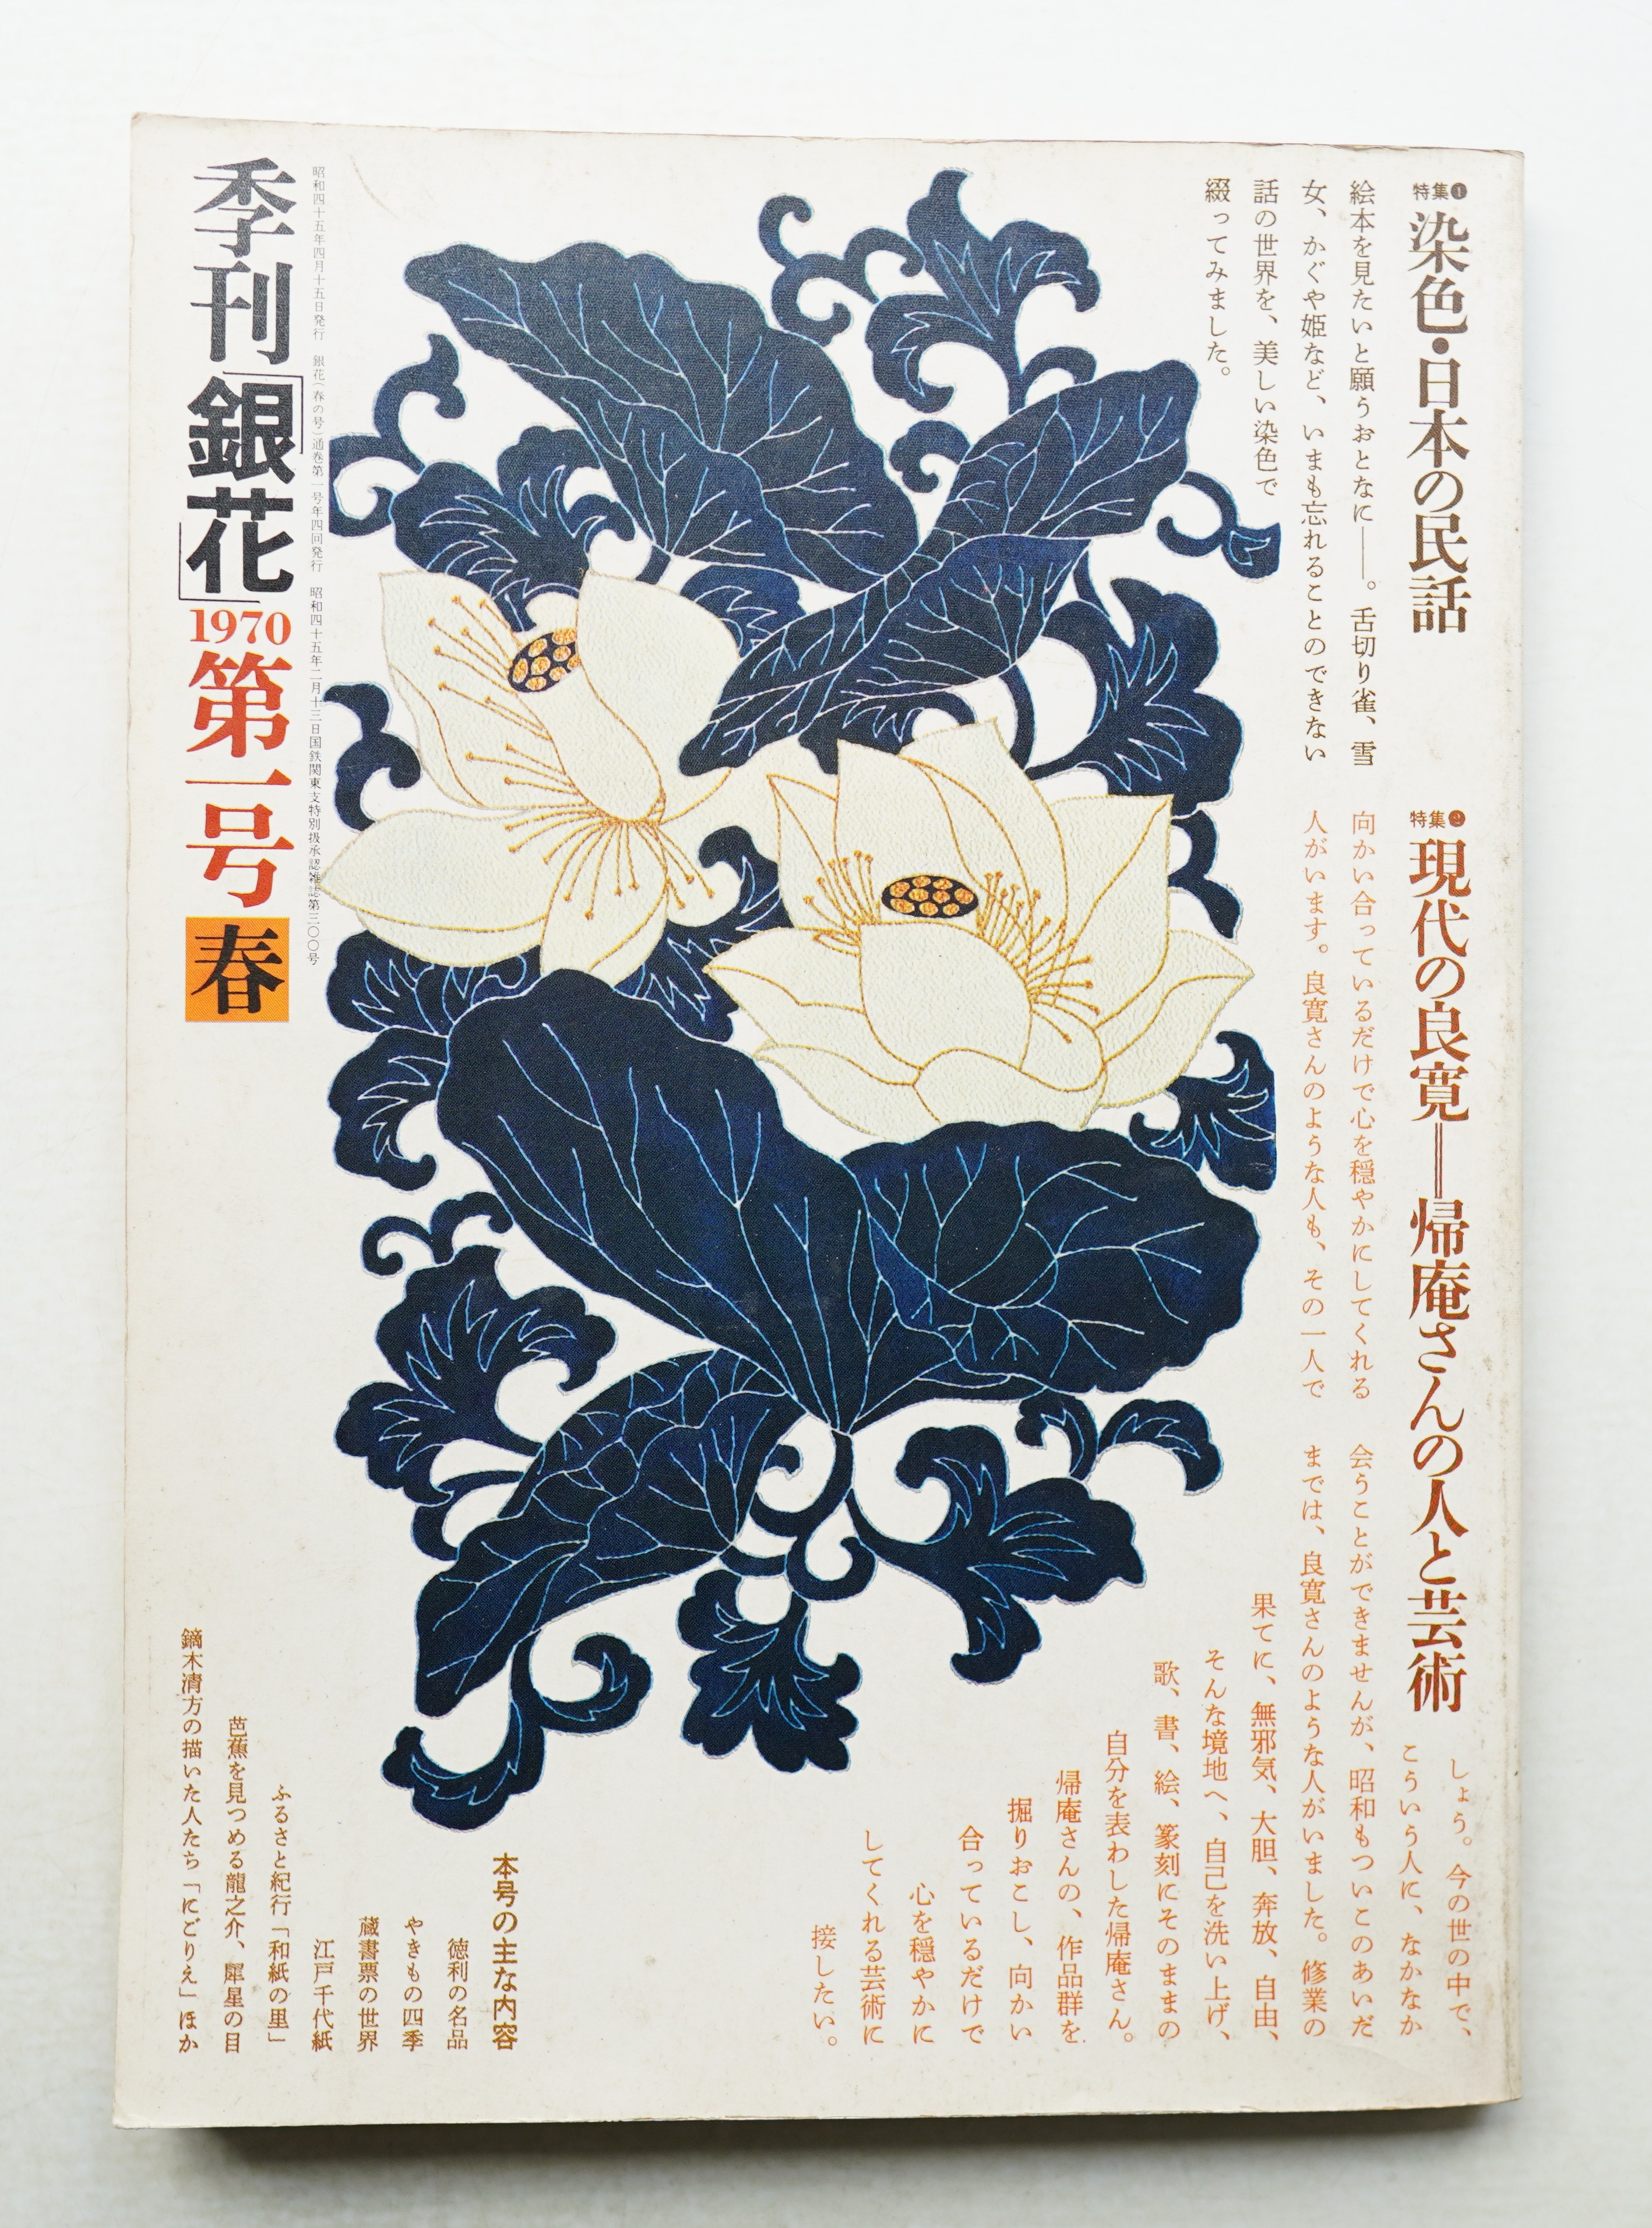 特集❶
染色・日本の民話
絵本を見たいと願うおとなに――。舌切り雀、雪
女、かぐや姫など、いまも忘れることのできない
話の世界を、美しい染色で
綴ってみました。
特集❷
現代の良寛――帰庵さんの人と芸術
向かい合っているだけで心を穏やかにしてくれる
人がいます。良寛さんのような人も、その一人で
しょう。今の世の中で、
こういう人に、なかなか
会うことができませんが、昭和もついこのあいだ
までは、良寛さんのような人がいました。修業の
果てに、無邪気、大胆、奔放、自由、
そんな境地へ、自己を洗い上げ、
歌、書、絵、篆刻にそのままの
自分を表わした帰庵さん。
帰庵さんの、作品群を
掘りおこし、向かい
合っているだけで
心を穏やかに
してくれる芸術に
接したい。
本号の主な内容
徳利の名品
やきもの四季
蔵書票の世界
江戸千代紙
ふるさと紀行「和紙の里」
芭蕉を見つめる龍之介、犀星の目
鏑木清方の描いた人たち「にごりえ」ほか
昭和四十五年四月十五日発行 銀花(春の号)通巻第一号年四回発行 昭和四十五年二月十三日国鉄関東支特別扱承認雑誌第三〇〇号
季刊「銀花」1970第一号春